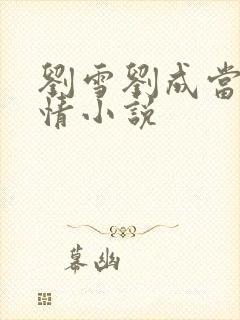 劉雪劉成當
情小説
幕幽